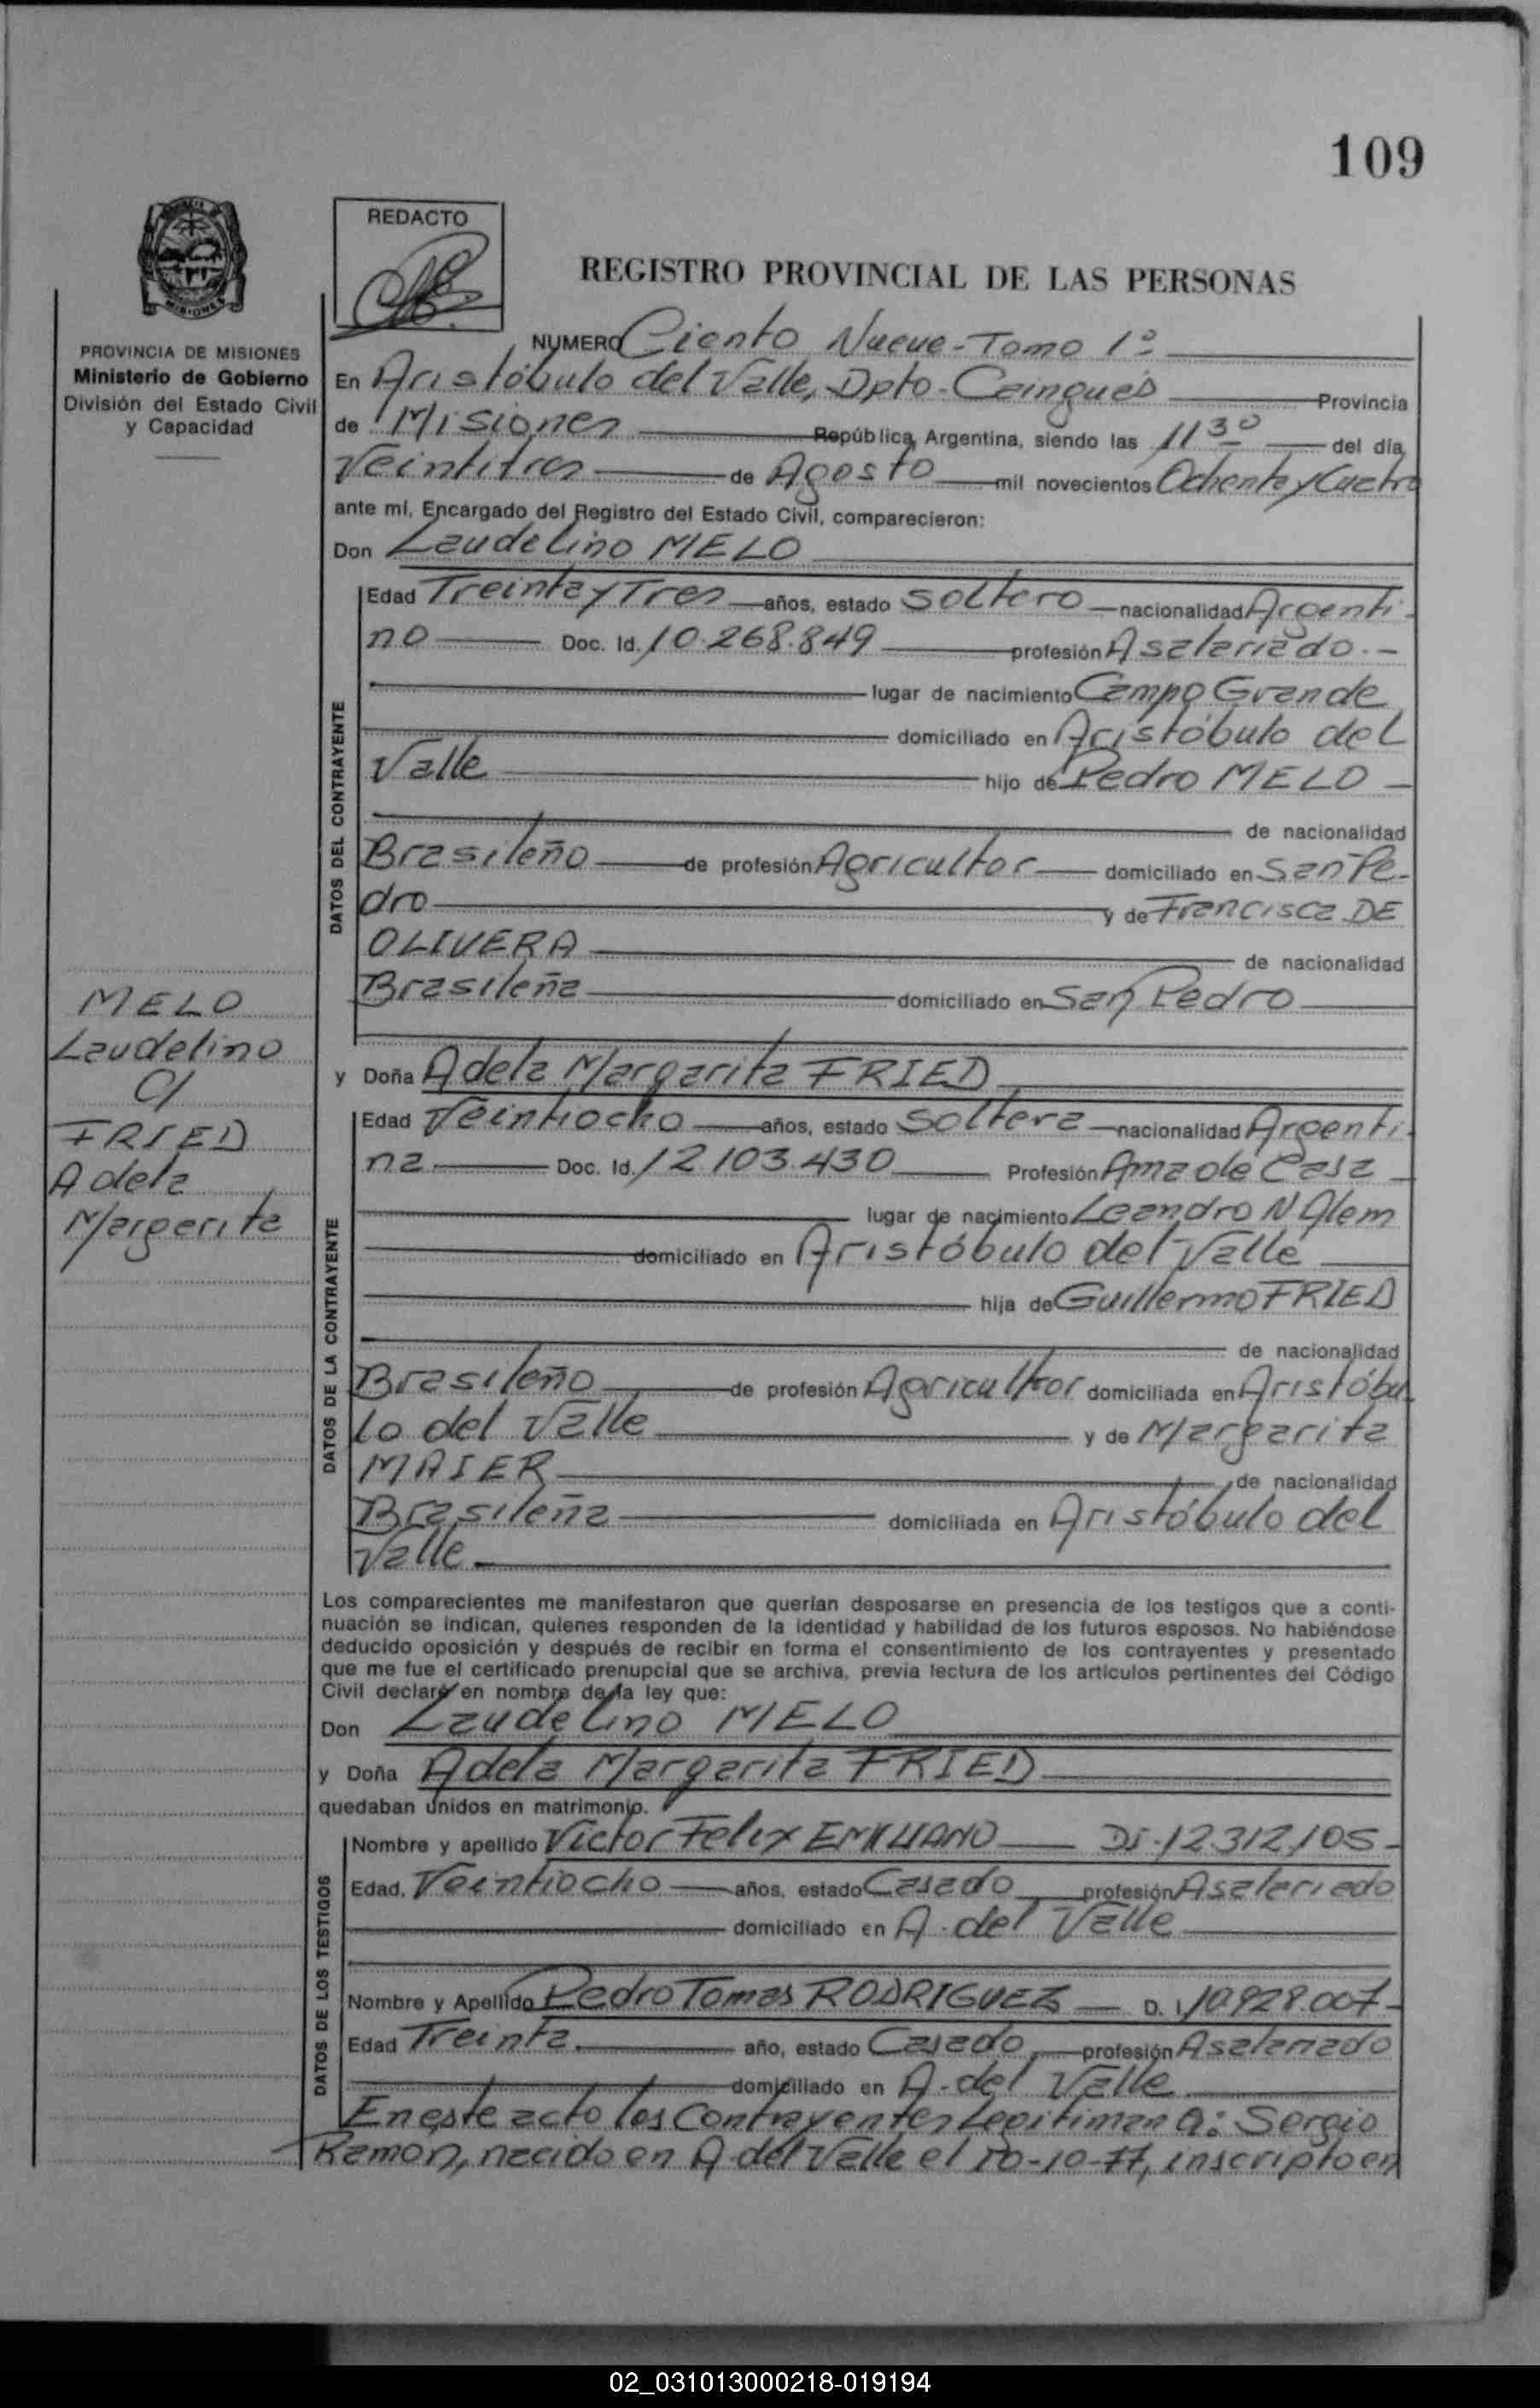 109
REDACTO
REGISTRO PROVINCIAL DE LAS PERSONAS
MISIONES
PROVINCIA DE MISIONES
Ministerio de Gobierno
División del Estado Civil
y Capacidad
NUMERO Ciento Nueve - Tomo 1º
En Aristóbulo del Valle, Dpto - Cainguás Provincia
de Misiones República Argentina, siendo las 11 30 del día
Veintitres de Agosto mil novecientos Ochenta y Cuatro
ante mí, Encargado del Registro del Estado Civil, comparecieron:
Don Laudelino MELO
DATOS DEL CONTRAYENTE
Edad Treinta y Tres años, estado soltero nacionalidad Argenti-
no Doc. Id. 10.268.849 profesión Asalariado.-
lugar de nacimiento Campo Grande
domiciliado en Aristóbulo del
Valle hijo de Pedro MELO
de nacionalidad
Brasileño de profesión Agricultor domiciliado en San Pe-
dro y de Francisca DE
OLIVERA de nacionalidad
Brasileña domiciliado en San Pedro
MELO
Laudelino
C/
FRIED
Adela
Margarita
y Doña Adela Margarita FRIED
DATOS DE LA CONTRAYENTE
Edad Veintiocho años, estado soltera nacionalidad Argenti-
na Doc. Id. 12.103.430 Profesión Ama de Casa
lugar de nacimiento Leandro N Alem
domiciliado en Aristóbulo del Valle
hija de Guillermo FRIED
de nacionalidad
Brasileño de profesión Agricultor domiciliada en Aristóbu
lo del Valle y de Margarita
MAIER de nacionalidad
Brasileña domiciliada en Aristóbulo del
Valle
Los comparecientes me manifestaron que querían desposarse en presencia de los testigos que a conti-
nuación se indican, quienes responden de la identidad y habilidad de los futuros esposos. No habiéndose
deducido oposición y después de recibir en forma el consentimiento de los contrayentes y presentado
que me fue el certificado prenupcial que se archiva, previa lectura de los artículos pertinentes del Código
Civil declaré en nombre de la ley que:
Don Laudelino MELO
y Doña Adela Margarita FRIED
quedaban unidos en matrimonio.
DATOS DE LOS TESTIGOS
Nombre y apellido Victor Felix EMILIANO DI. 12.312.105
Edad, Veintiocho años, estado Casado profesión Asalariado
domiciliado en A. del Valle
Nombre y Apellido Pedro Tomas RODRIGUEZ D. I. 10.928.007
Edad Treinta año, estado Casado profesión Asalariado
domiciliado en A. del Valle
En este acto los Contrayentes legitiman a: Sergio
Ramon, nacido en A. del Valle el 10-10-77, inscripto en
02_031013000218-019194